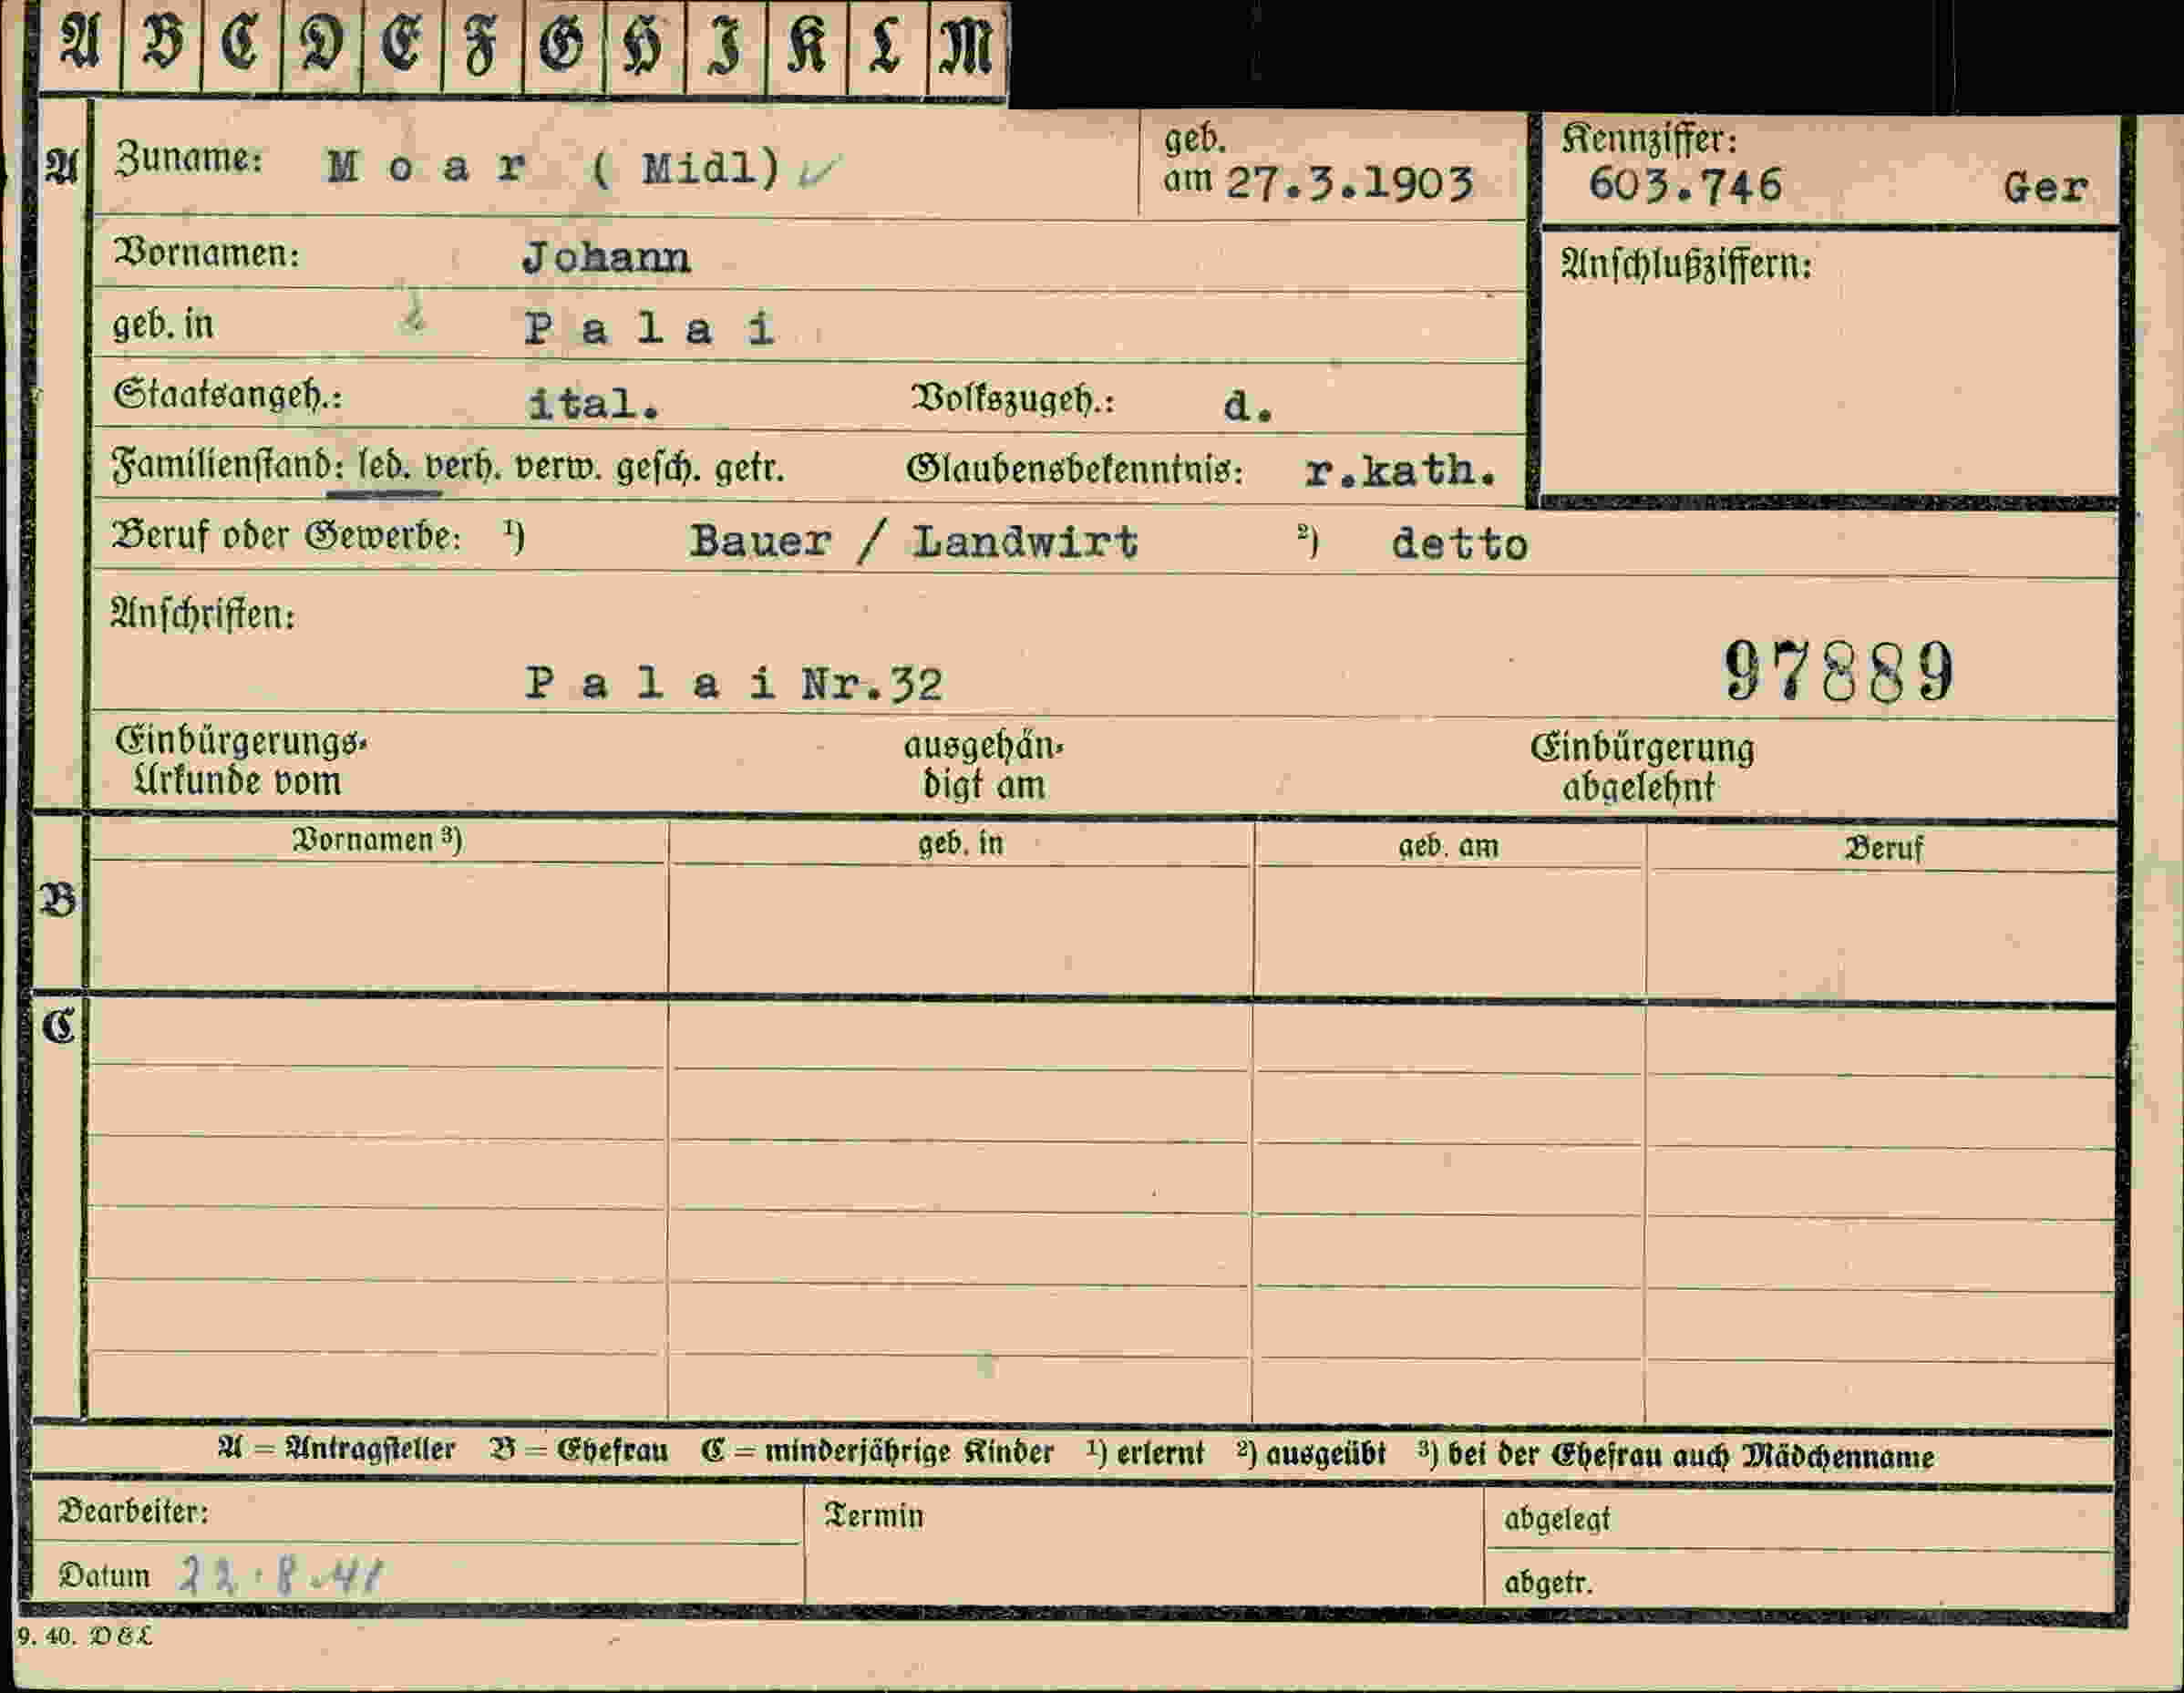 A B C D E F G H I K L M
A Zuname: M o a r ( Midl) geb. am 27.3.1903 Kennziffer: 603.746 Ger
Vornamen: Johann Anschlußziffern:
geb. in P a l a i
Staatsangeh.: ital. Volkszugeh.: d.
Familienstand: led. verh. verw. gesch. getr. Glaubensbekenntnis: r.kath.
Beruf oder Gewerbe: 1) Bauer / Landwirt 2) detto
Anschriften:
P a l a i Nr.32 97889
Einbürgerungs- ausgehän- Einbürgerung
Urkunde vom digt am abgelehnt
Vornamen 3) geb. in geb. am Beruf
B
C
A = Antragsteller B = Ehefrau C = minderjährige Kinder 1) erlernt 2) ausgeübt 3) bei der Ehefrau auch Mädchenname
Bearbeiter: Termin abgelegt
Datum 22.8.41 abgetr.
9. 40. D&L